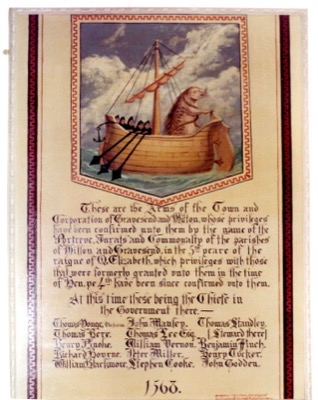 These are the Arms of the Town and
Corporation of Gravesend and Milton, whose privileges
have been confirmed unto them by the name of the
Portreve, Jurats and Commonalty of the parishes
of Milton and Gravesend, in the 5th yeare of the
raigne of Q. Elizabeth, which privileges with those
that were formerly granted unto them in the time
of Hen. ye 4th have been since confirmed unto them.
At this time these being the Chiefe in
the Government there.
Thomas Yonge, John Manley. Thomas Standley,
Thomas Bere. Thomas Lee Esq. [Steward there]
Henry William Vernon. Benjamin Finch.
Richard Bourne. Peter Miller. Henry Tucker.
William Stephen Cooke. John Godden.
1568.